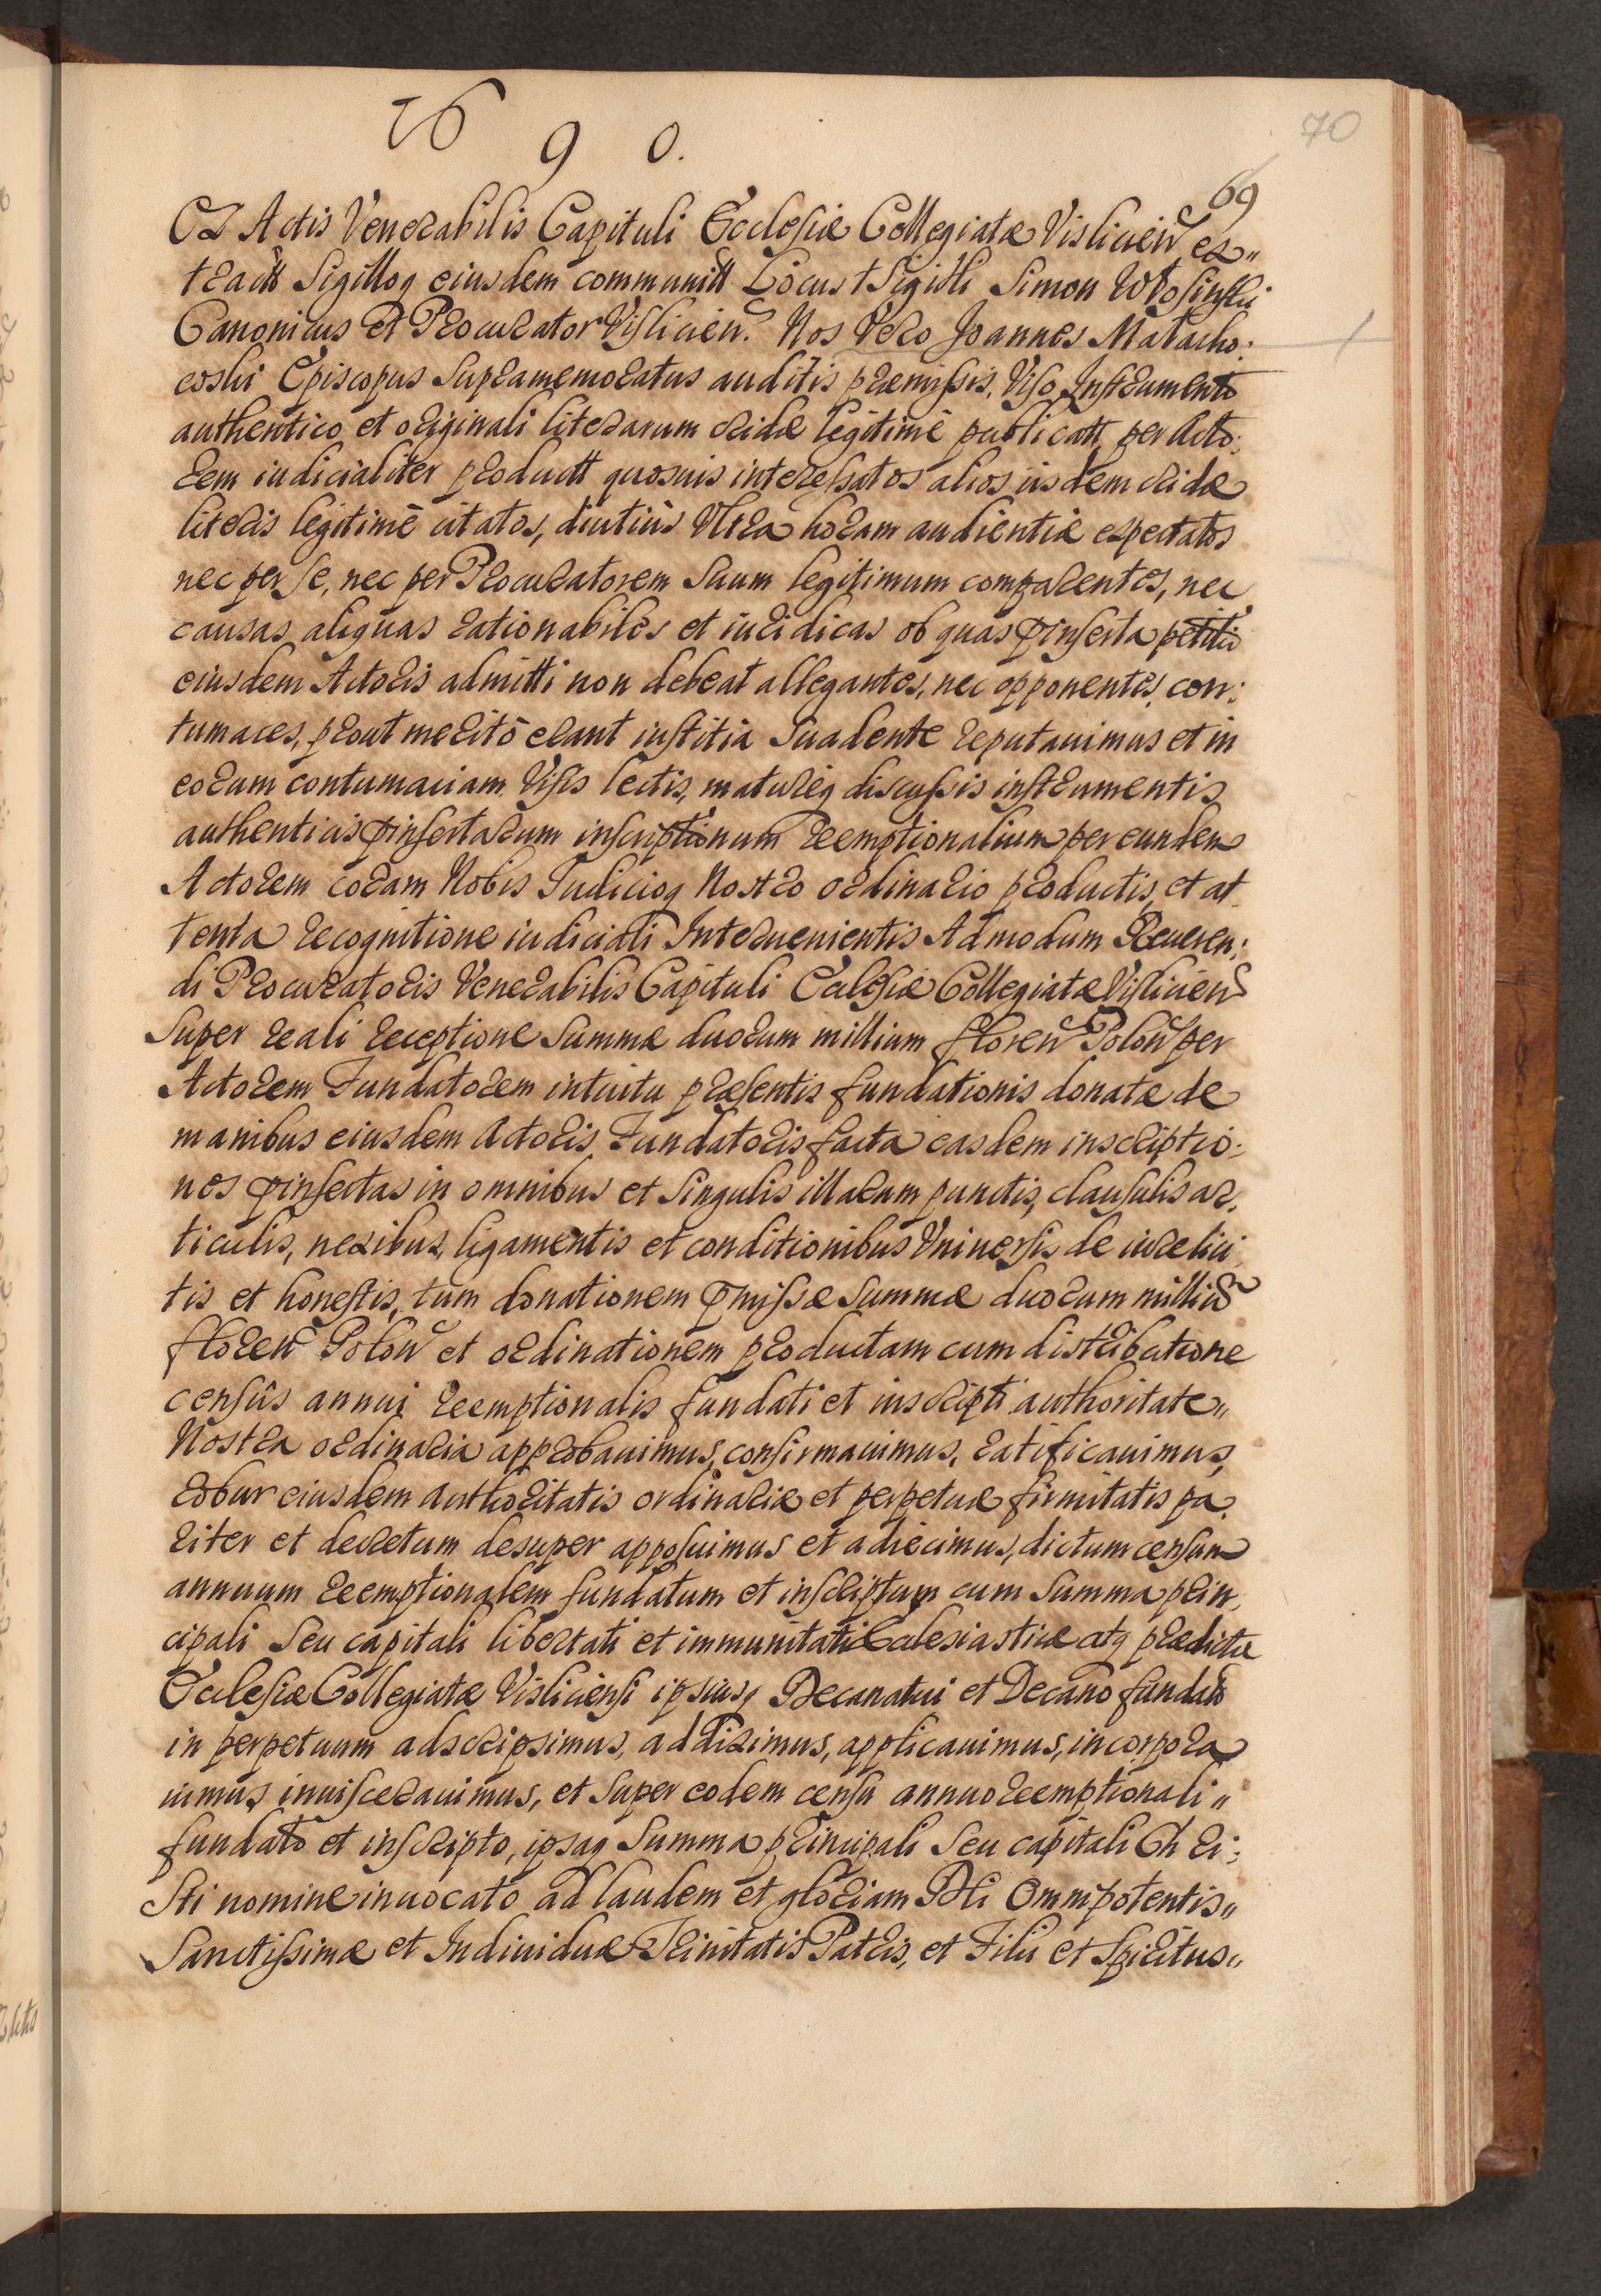 70
1690.
69
Ex Actis Venerabilis Capituli Ecclesiæ Collegiatæ Vislicień ex„
tractt Sigilloq eiusdem communitt Locus + Sigilli Simon Wosinski
Canonicus et Procurator Vislicień. Nos Vero Joannes Małacho:
coski Episcopus Supramemoratus auditis præmissis, Viso Instrumento
authentico et originali literarum cridæ legitimè publicatt per Acto:
rem iudicialiter productt quosuis interessatos alios iisdem cridæ
literis legitimè citatos, diutiùs Vltra horam audientiæ expectatos
nec per se, nec per Procuratorem Suum legitimum comparentes, nec
causas aliquas rationabiles et iuridicas ob quas p̄inserta petitio
eiusdem Actoris admitti non debeat allegantes, nec opponentes, con:
tumaces, prout meritò erant iustitia Suadente reputauimus et in
eorum contumaciam. Visis lectis, matureq discussis instrumentis
authenticis p̄insertarum inscriptionum reemptionalium per eundem
Actorem coram Nobis Iudicioq Nostro ordinario productis, et at
tenta recognitione iudiciali Interuenientis Admodum Reueren:
di Procuratoris Venerabilis Capituli Ecclesiæ Collegiatæ Vislicień
Super reali receptione Summæ duorum millium floreń Poloń per
Actorem Fundatorem intuitu præsentis fundationis donatæ de
manibus eiusdem Actoris Fundatoris facta easdem inscriptio:
nes p̄insertas in omnibus et Singulis illarum punctis, clausulis ar,
ticulis, nexibus, ligamentis et conditionibus Vniuersis de iure lici
tis et honestis, tum donationem p̄missæ Summæ duorum milliũ
floreń Poloń et ordinationem productam cum distributione
censûs annui reemptionalis fundati et inscripti authoritate„
Nostra ordinaria approbauimus, confirmauimus, ratificauimus,
robur eiusdem Authoritatis ordinariæ et perpetuæ firmitatis pa,
riter et decretum desuper apposuimus et adiecimus, dictum censum
annuum reemptionalem fundatum et inscriptum cum Summa prin,
cipali Seu capitali libertati et immunitati Ecclesiasticæ atq prædictæ
Ecclesiæ Collegiatæ Visliciensi ipsiusq Decanatui et Decano fundato
in perpetuum adscripsimus, addiximus, applicauimus, incorpora
uimus, inuiscerauimus, et Super eodem censu annuo reemptionali„
fundato et inscripto, ipsaq Summa principali Seu capitali Chri:
sti nomine inuocato ad laudem et gloriam Dei Omnipotentis„
Sanctissimæ et Indiuiduæ Trinitatis Patris, et Filii et Spiritus„